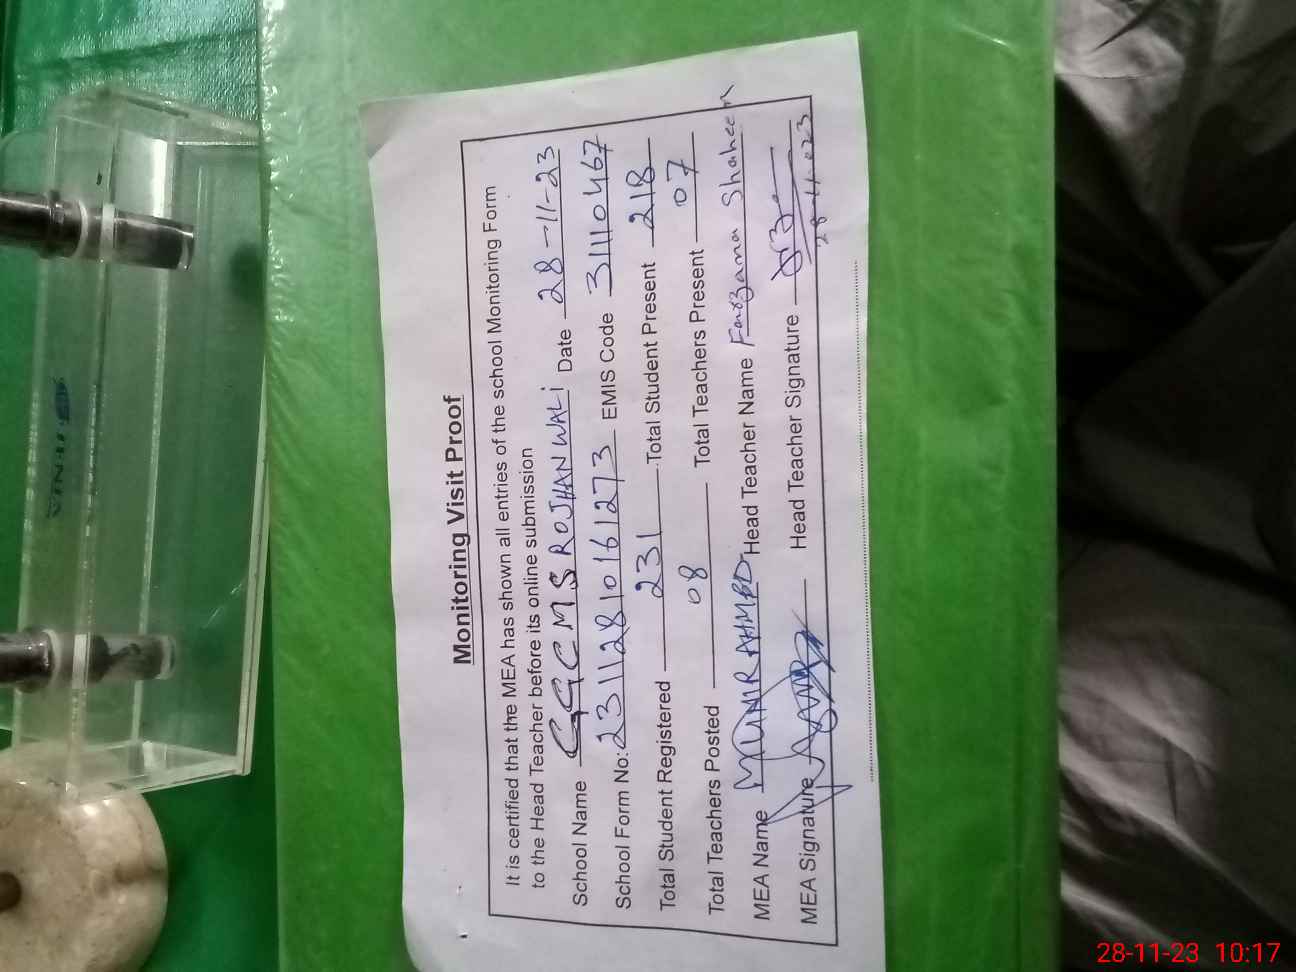 Monitoring Visit Proof
It is certified that the MEA has shown all entries of the school Monitoring Form
to the Head Teacher before its online submission
School Name GGCMS ROJHANWALI Date 28-11-23
School Form No: 23112810161273 EMIS Code 31110467
Total Student Registered 231 Total Student Present 218
Total Teachers Posted 08 Total Teachers Present 07
MEA Name MUNIR AHMED Head Teacher Name Farzana Shaheen
MEA Signature Head Teacher Signature
28-11-023
28-11-23 10:17